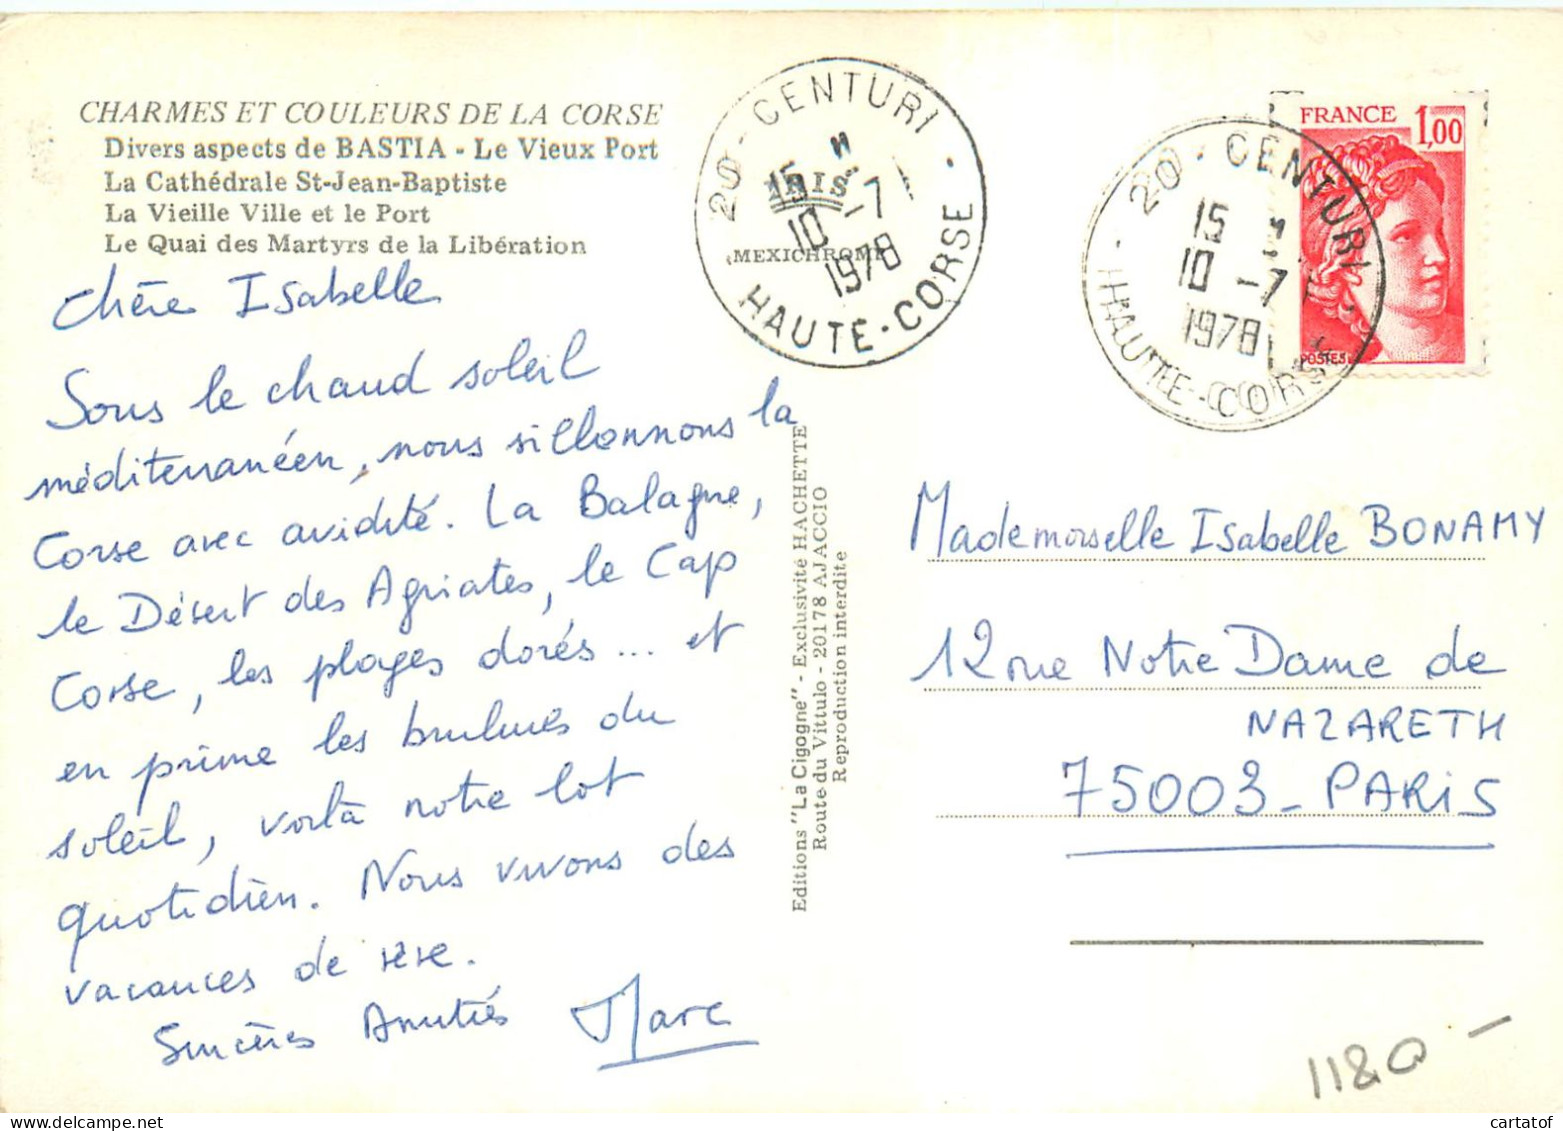 CHARMES ET COULEURS DE LA CORSE
Divers aspects de BASTIA - Le Vieux Port
La Cathédrale St-Jean-Baptiste
La Vieille Ville et le Port
Le Quai des Martyrs de la Libération
Chère Isabelle
Sous le chaud soleil
méditerranéen, nous sillonnons la
Corse avec avidité. La Balagne,
le Désert des Agriates, le Cap
Corse, les plages dorés... et
en prime les brulures du
soleil, voilà notre lot
quotidien. Nous vivons des
vacances de rêve.
Sincères Amitiés Marc
20 - CENTURI
15 H
10 - 7
1978
HAUTE - CORSE
IRIS
MEXICHROME
Editions "La Cigogne" - Exclusivité HACHETTE
Route du Vittulo - 20178 AJACCIO
Reproduction interdite
20 - CENTURI
15 H
10 - 7
1978
HAUTE - CORSE
FRANCE 1,00
POSTES
Mademoiselle Isabelle BONAMY
12 rue Notre Dame de
NAZARETH
75003 - PARIS
cartatof